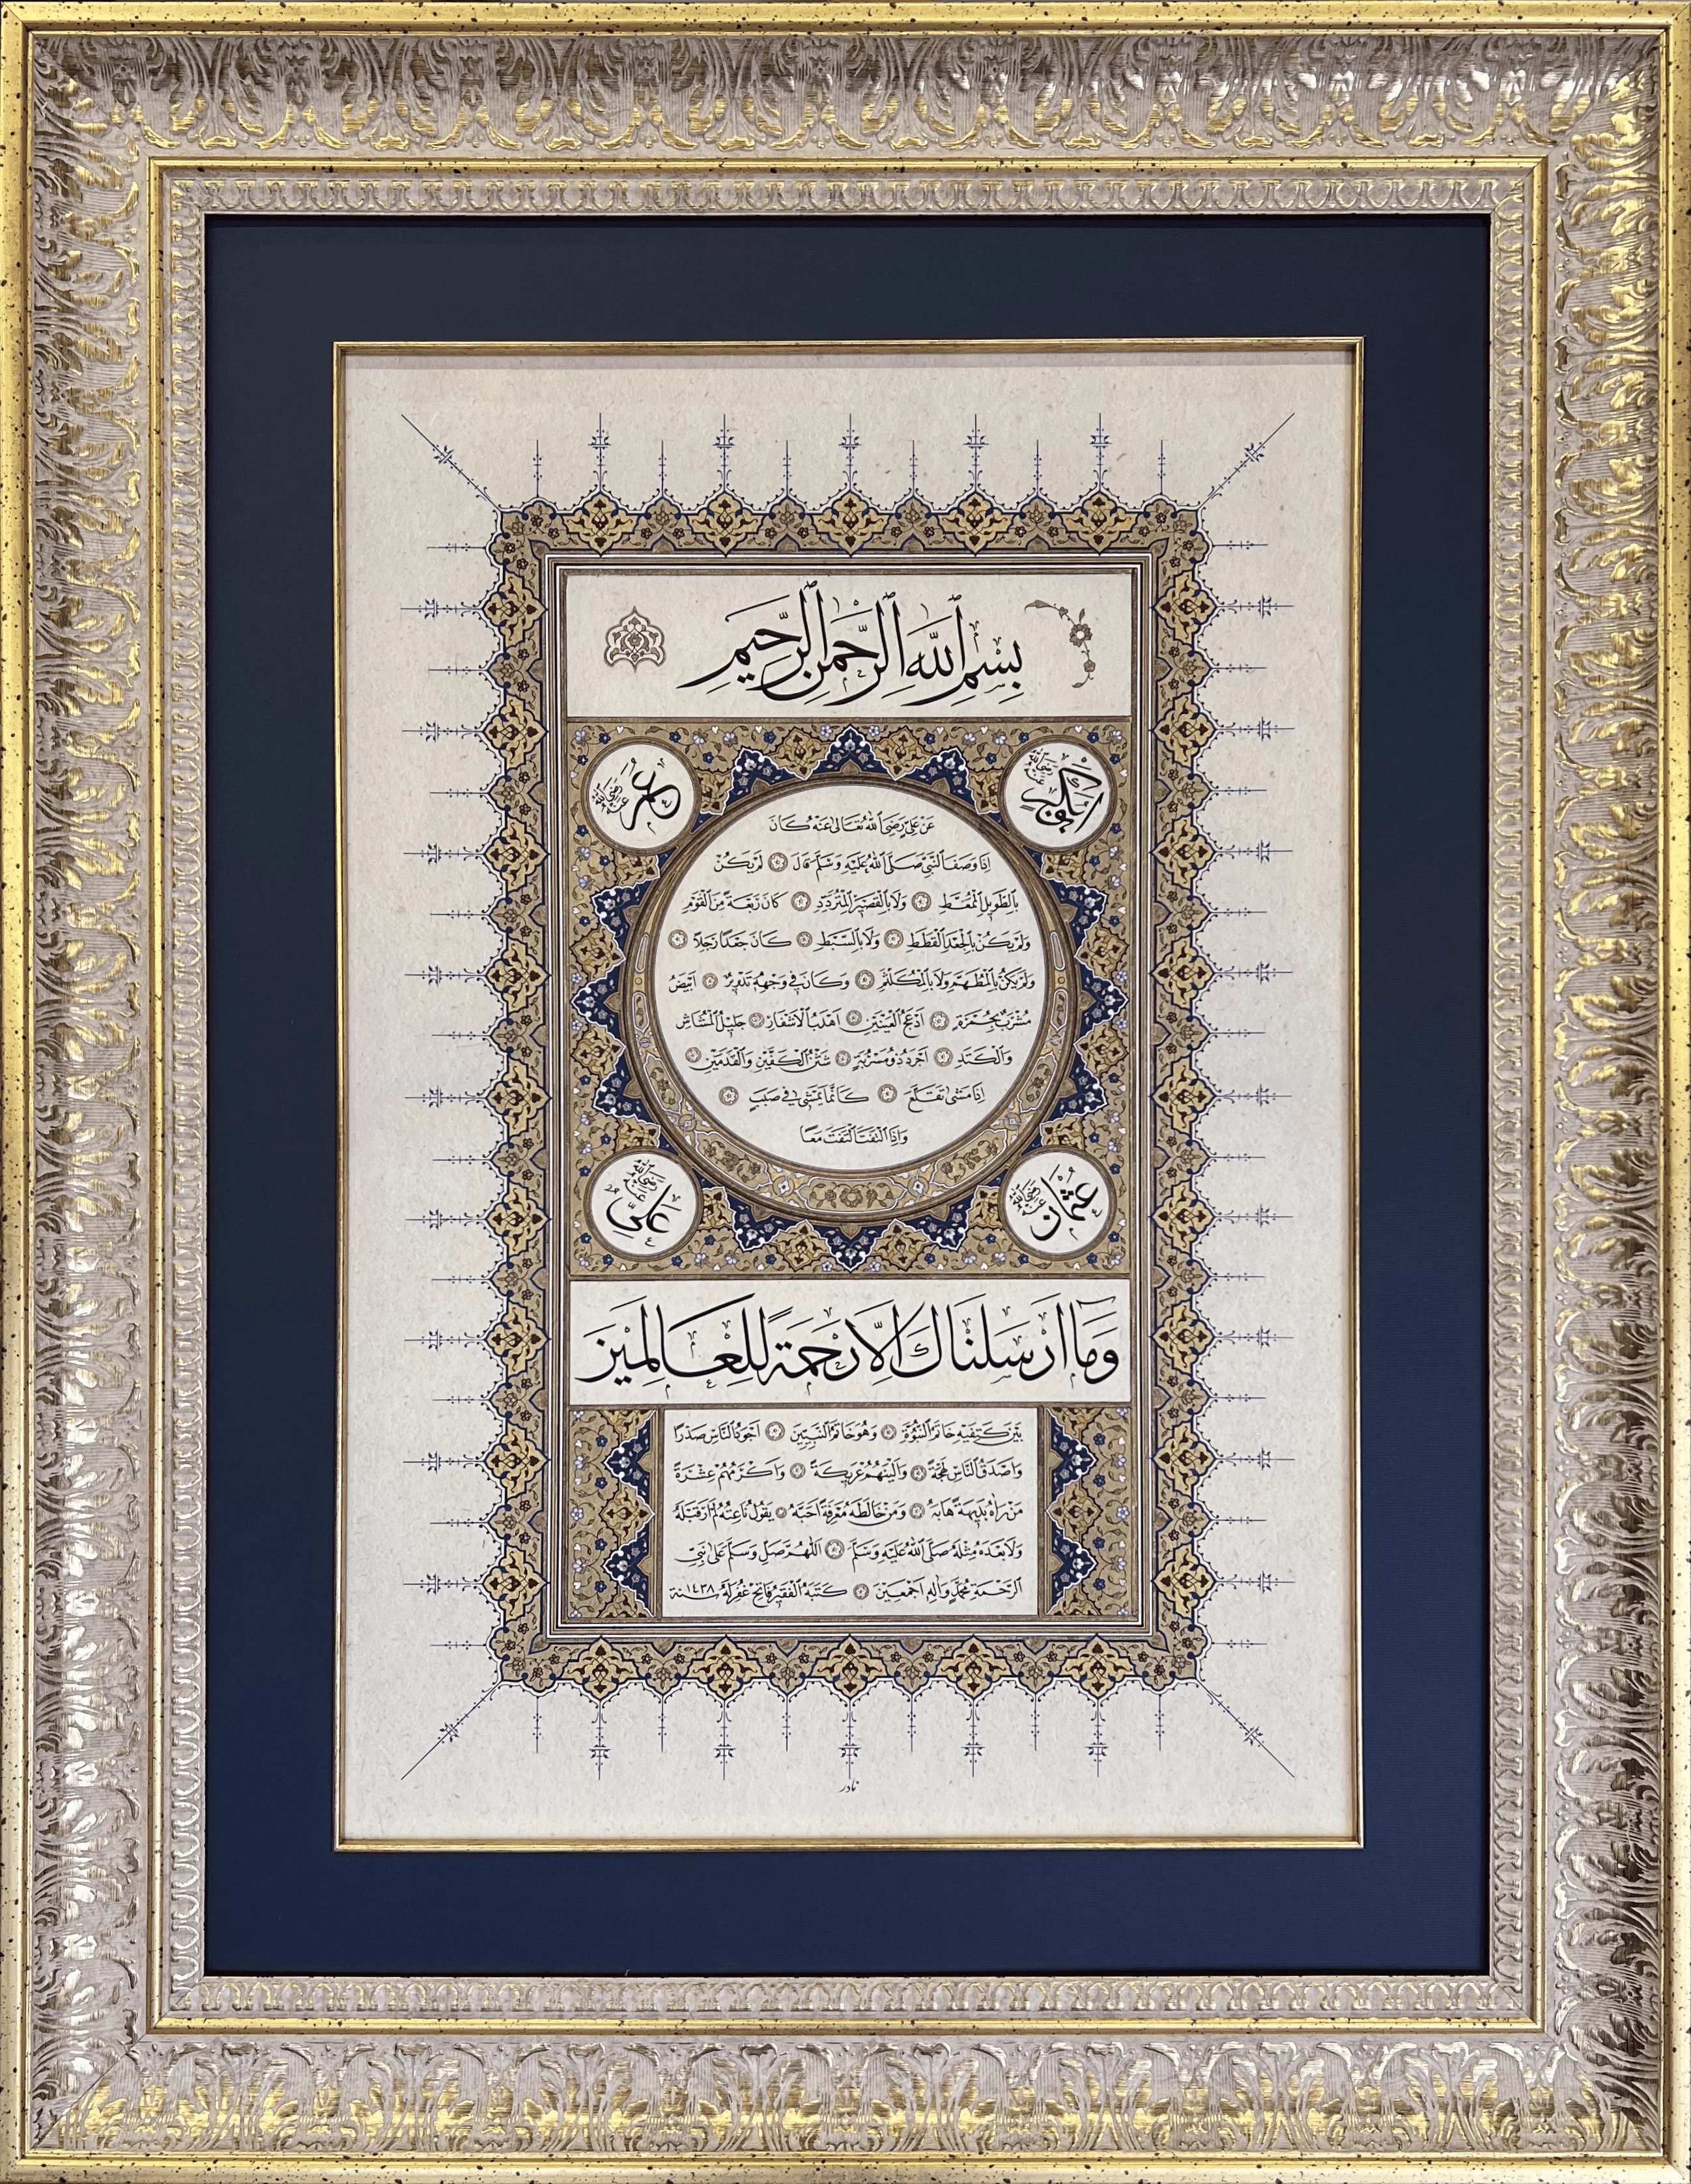 بسم الله الرحمن الرحيم
ابوبكر رضي الله عنه
عمر رضي الله عنه
عن علي رضي الله تعالى عنه كان
اذا وصف النبي صلى الله عليه وسلم قال لم يكن
بالطويل الممغط ولا بالقصير المتردد كان ربعة من القوم
ولم يكن بالجعد القطط ولا بالسبط كان جعدا رجلا
ولم يكن بالمطهم ولا بالمكلثم وكان في وجهه تدوير ابيض
مشرب بحمرة ادعج العينين اهدب الاشفار جليل المشاش
والكتد اجرد ذو مسربة شثن الكفين والقدمين
اذا مشى تقلع كانما يمشي في صبب
واذا التفت التفت معا
عثمان رضي الله عنه
علي رضي الله عنه
وما ارسلناك الا رحمة للعالمين
بين كتفيه خاتم النبوة وهو خاتم النبيين اجود الناس صدرا
واصدق الناس لهجة والينهم عريكة واكرمهم عشرة
من راه بديهة هابه ومن خالطه معرفة احبه يقول ناعته لم ار قبله
ولا بعده مثله صلى الله عليه وسلم اللهم صل وسلم على نبي
الرحمة محمد واله اجمعين كتبه الفقير فاتح غفر له سنة ١٤٣٨
نادر